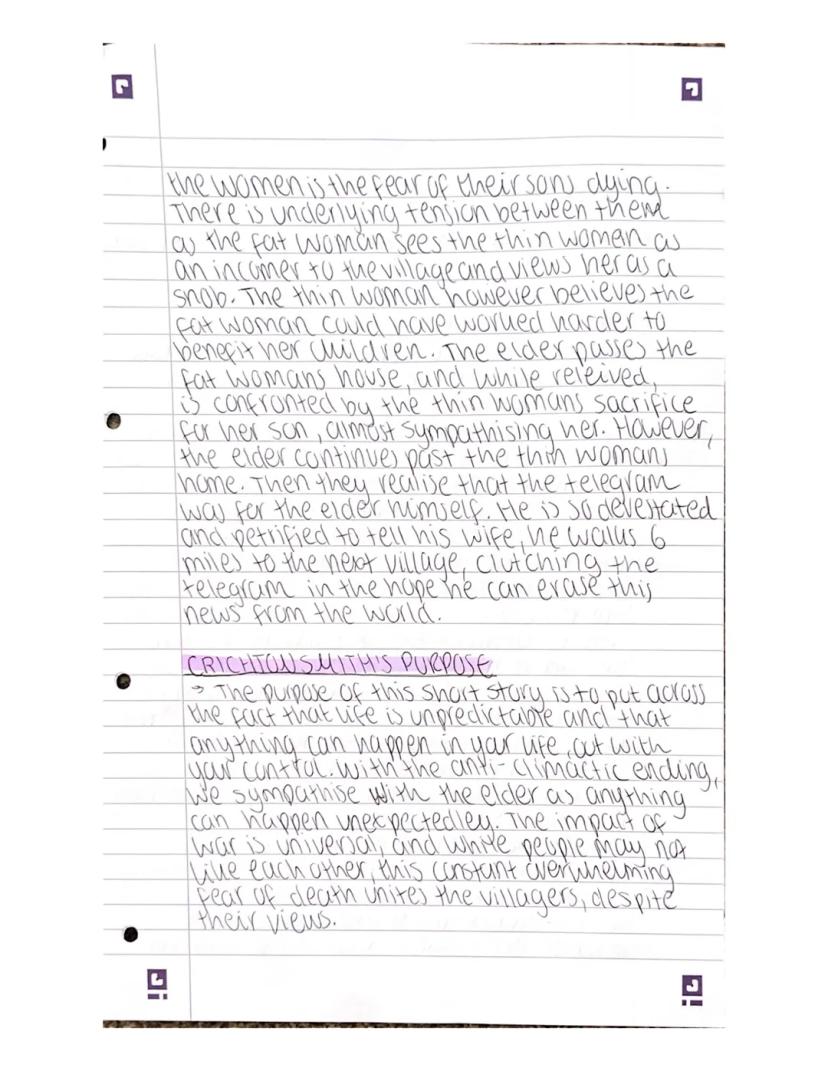 the women is the fear of their sons dying.
There is underlying tension between them
as the fat woman sees the thin woman as
an incomer to the village and views her as a
snob. The thin woman however believes the
fat woman could have worked harder to
benefit her children. The elder passes the
fat womans house, and while releived,
is confronted by the thin womans sacrifice
for her son, almost sympathising her. However,
the elder continues past the thin womans
home. Then they realise that the telegram
was for the elder himself. He is so devestated
and petrified to tell his wife, he walks 6
miles to the next village, clutching the
telegram in the hope he can erase this
news from the world.
CRICHTON SMITH'S PURPOSE
→ The purpose of this short story is to put across
the fact that life is unpredictable and that
anything can happen in your life, out with
your control. With the anti-climactic ending,
we sympathise with the elder as anything
can happen unexpectedley. The impact of
war is universal, and while people may not
like each other, this constant overwhelming
fear of death unites the villagers, despite
their views.